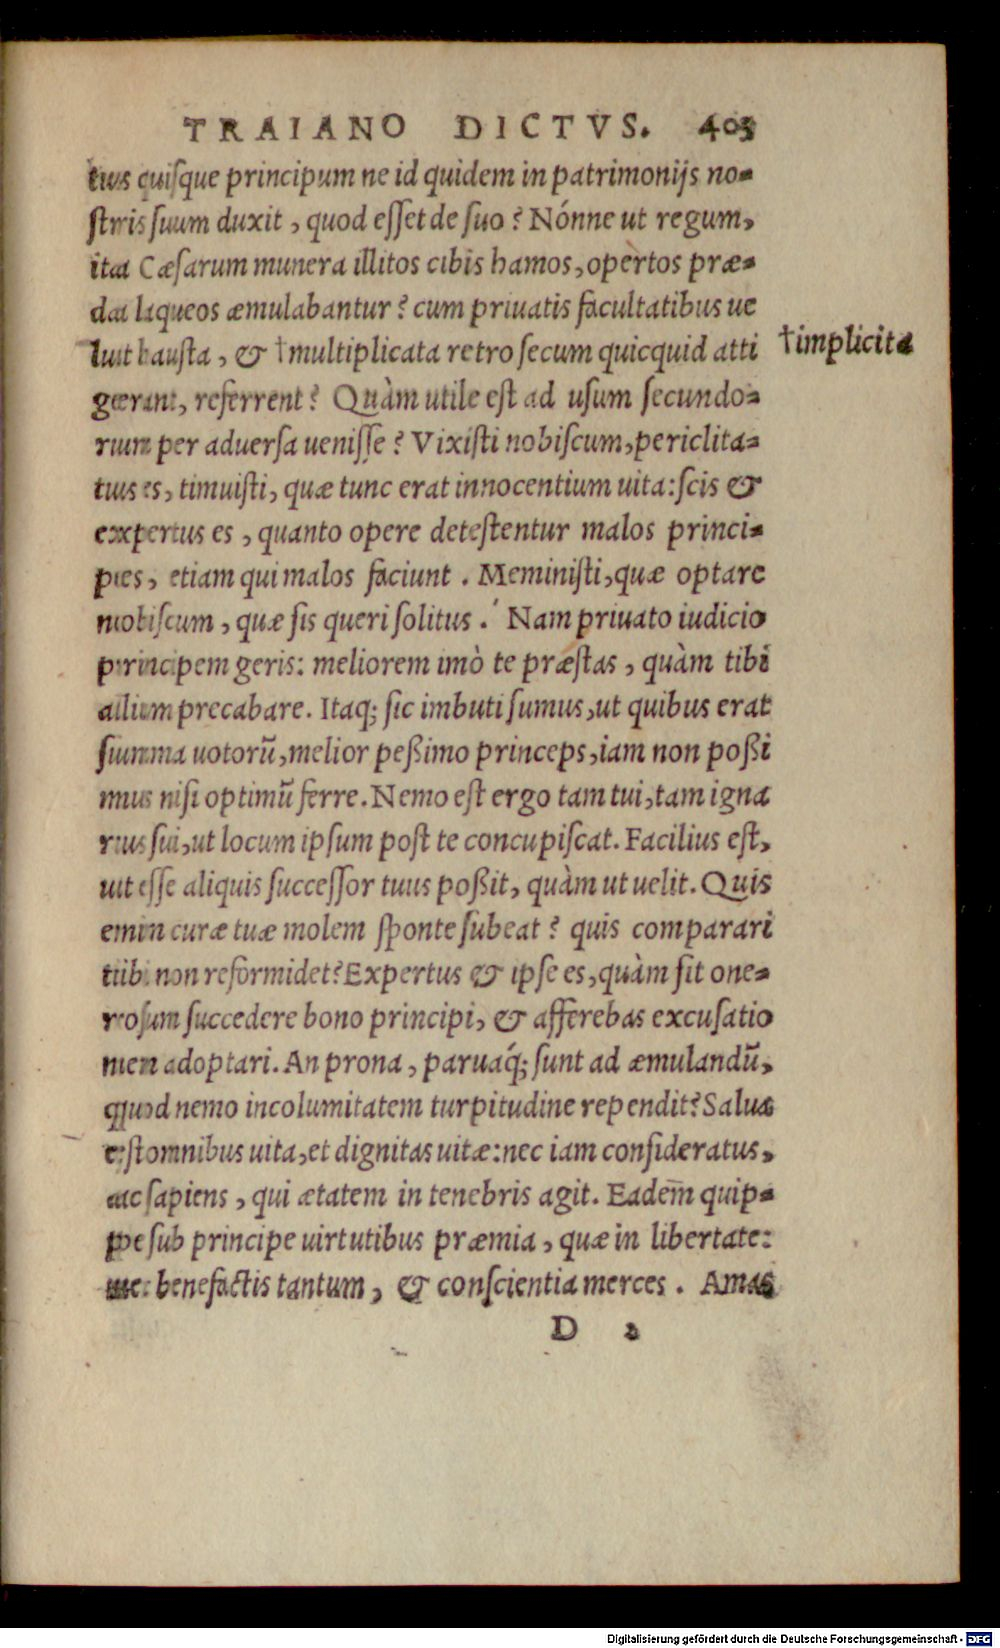 TRAIANO DICTVS. 403
tius quisque principum ne id quidem in patrimonijs no-
stris suum duxit, quod esset de suo? Nónne ut regum,
ita Cæsarum munera illitos cibis hamos, opertos præ-
da laqueos æmulabantur? cum priuatis facultatibus ue
lut hausta, & †multiplicata retro secum quicquid atti
†implicita
gerant, referrent? Quàm utile est ad usum secundo-
rum per aduersa uenisse? Vixisti nobiscum, periclita-
tus es, timuisti, quæ tunc erat innocentium uita: scis &
expertus es, quanto opere detestentur malos princi-
pes, etiam qui malos faciunt. Meministi, quæ optare
nobiscum, quæ sis queri solitus. Nam priuato iudicio
principem geris: meliorem imò te præstas, quàm tibi
alium precabare. Itaq; sic imbuti sumus, ut quibus erat
summa uotorũ, melior peßimo princeps, iam non poßi
mus nisi optimũ ferre. Nemo est ergo tam tui, tam igna
rus sui, ut locum ipsum post te concupiscat. Facilius est,
ut esse aliquis successor tuus poßit, quàm ut uelit. Quis
enim curæ tuæ molem sponte subeat? quis comparari
tibi non reformidet? Expertus & ipse es, quàm sit one-
rosum succedere bono principi, & afferebas excusatio
nem adoptari. An prona, paruaq́; sunt ad æmulandũ,
quod nemo incolumitatem turpitudine rependit? Salua
est omnibus uita, et dignitas uitæ: nec iam consideratus,
ac sapiens, qui ætatem in tenebris agit. Eadem̃ quip-
pe sub principe uirtutibus præmia, quæ in libertate:
nec benefactis tantum, & conscientia merces. Amas
D 2
Digitalisierung gefördert durch die Deutsche Forschungsgemeinschaft - DFG